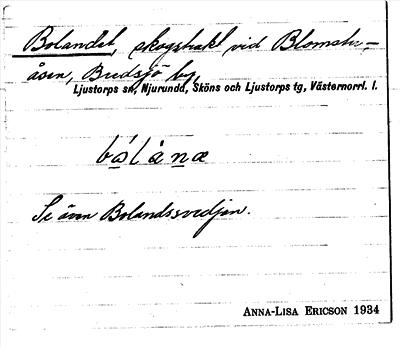 Bolandet, skogstrakt vid Blomster-
åsen, Bredsjö by,
Ljustorps sn, Njurunda, Sköns och Ljustorps tg, Västernorrl. l.
Se även Bolandssvedjen.
ANNA-LISA ERICSON 1934